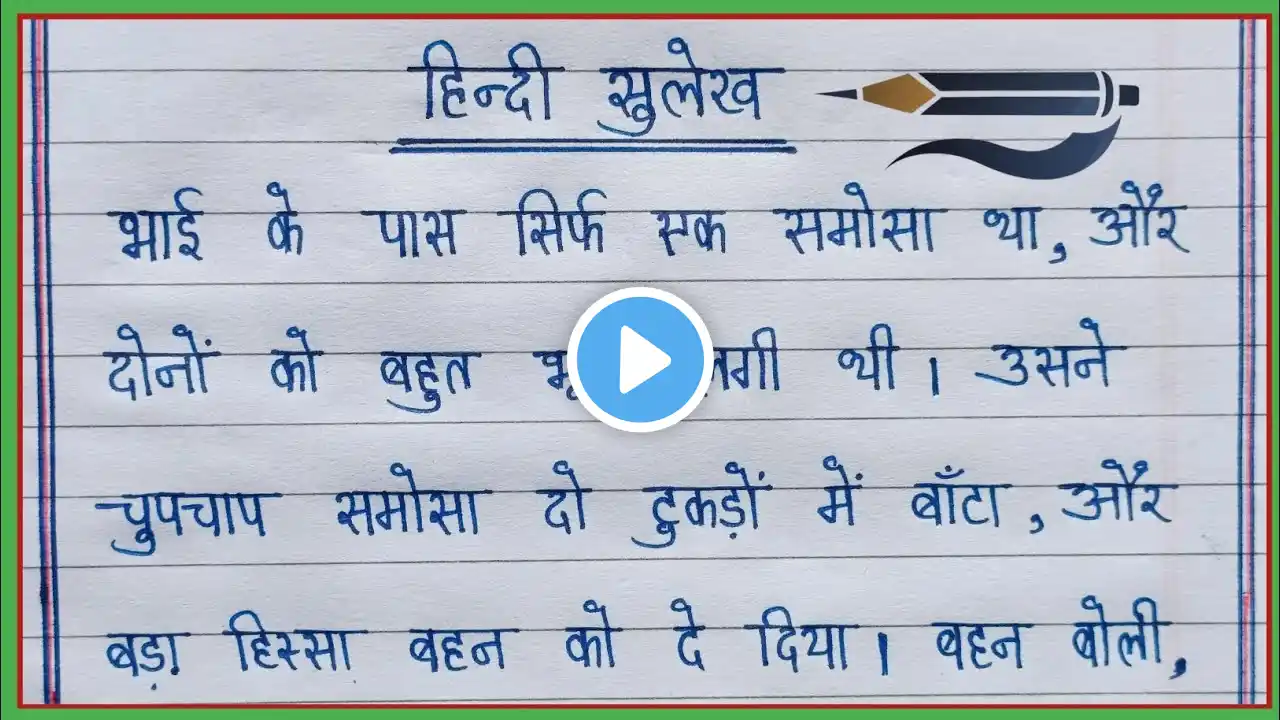 हिन्दी सुलेख
भाई के पास सिर्फ एक समोसा था, और
दोनों को बहुत थी । उसने
चुपचाप समोसा दो टुकड़ों में बाँटा, और
बड़ा हिस्सा बहन को दे दिया । बहन बोली,